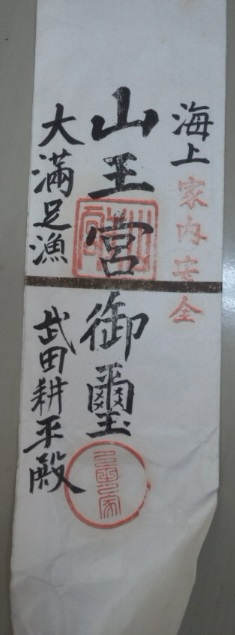 海上
家内安全
山王宮御璽
大満足漁
武田耕平殿